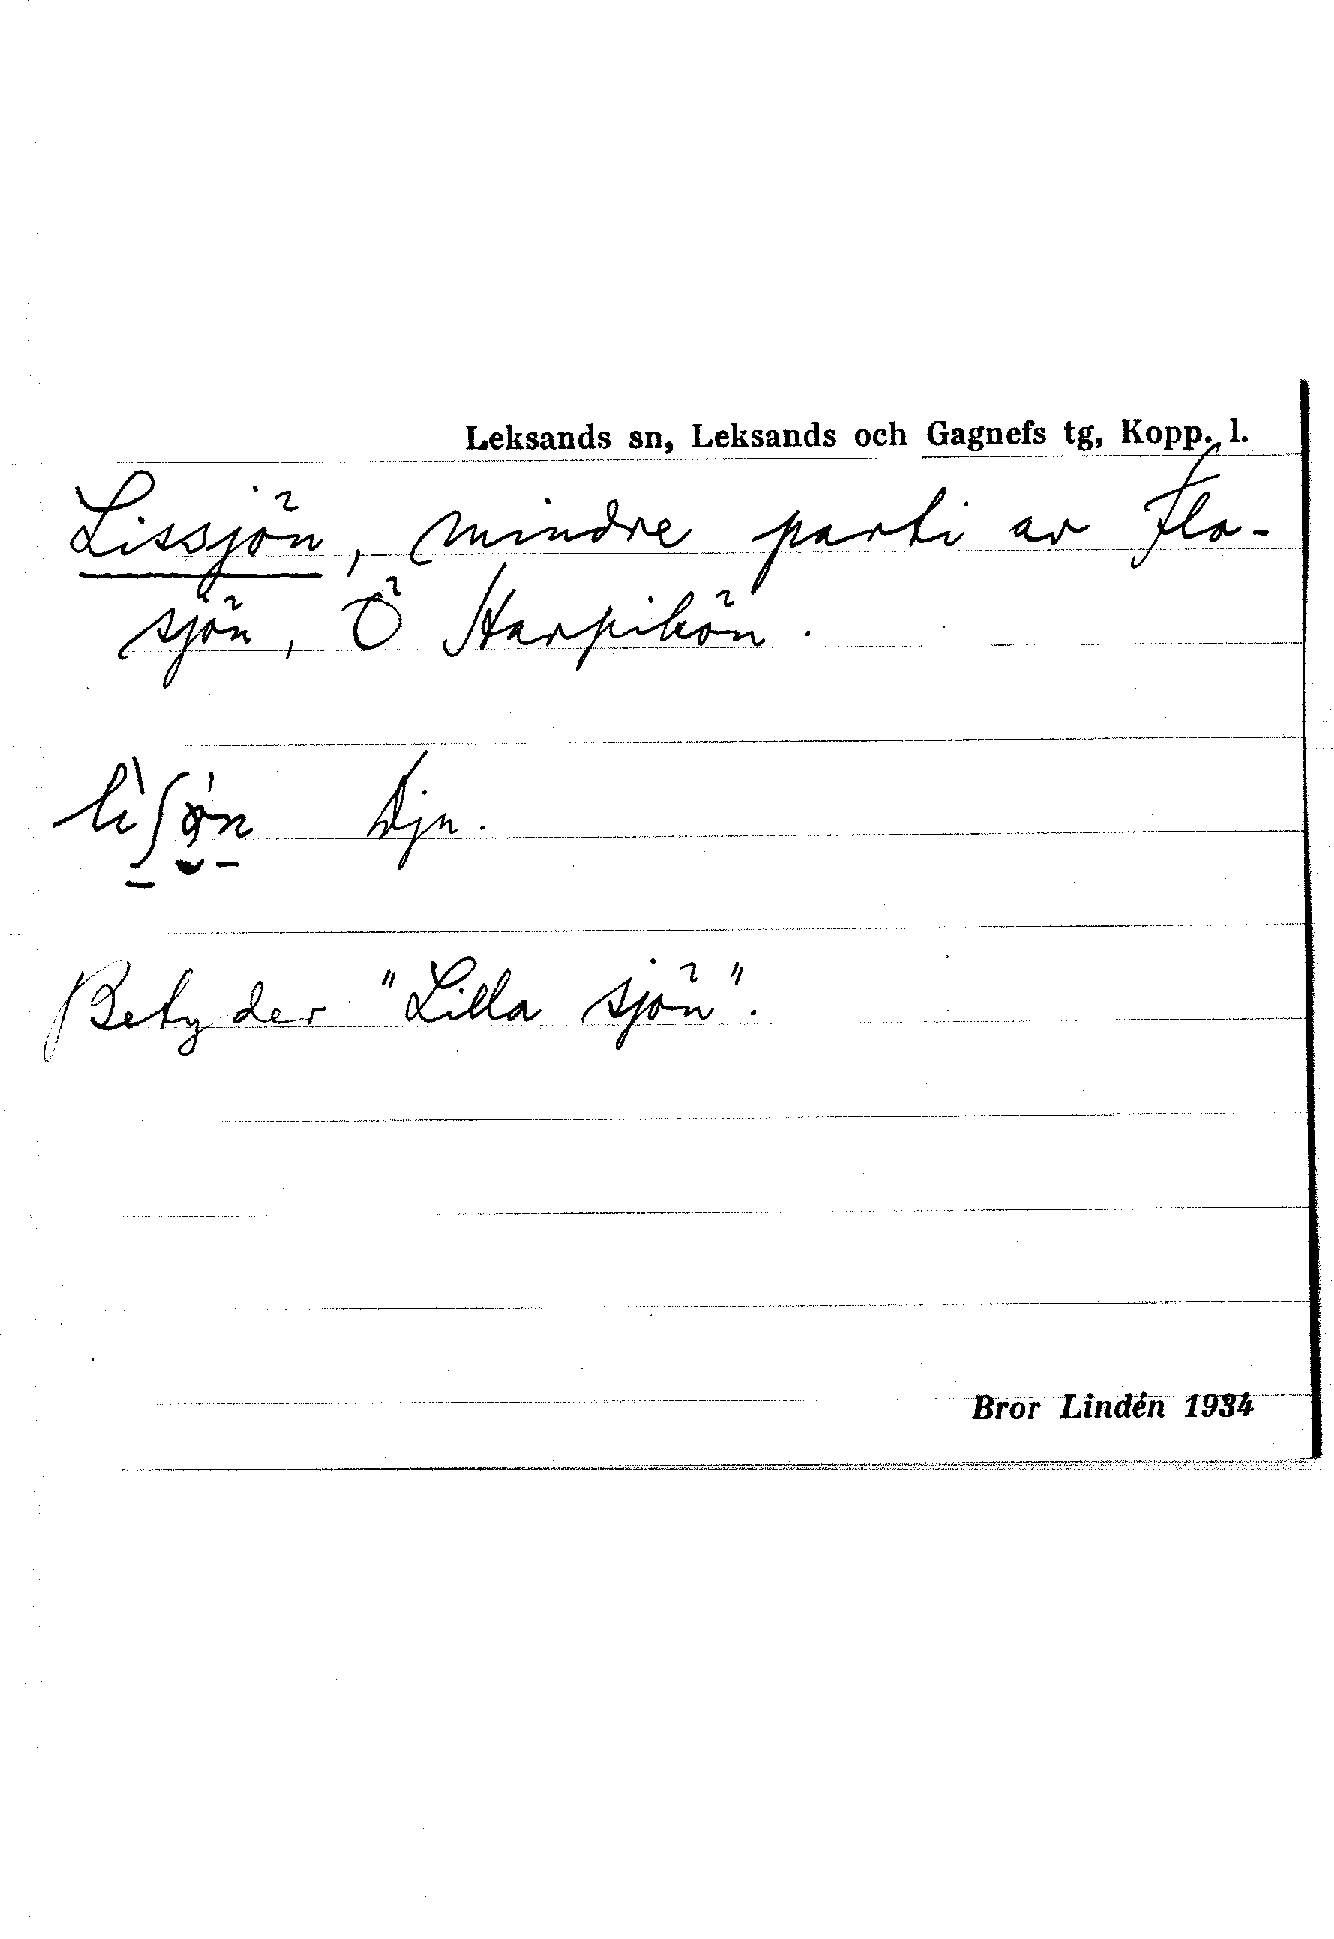 Leksands sn, Leksands och Gagnefs tg, Kopp. l.
Lissjön, mindre parti av Flo-
sjön, Ö Harpikön.
lìʃø̀n Djn.
Betyder "Lilla sjön".
Bror Lindén 1934